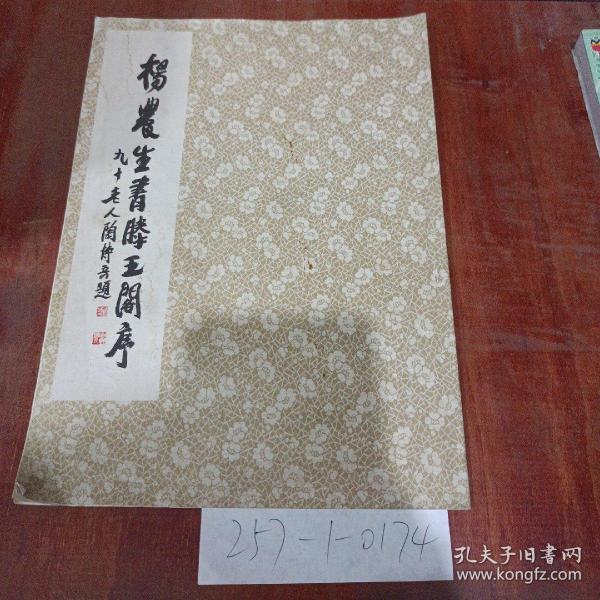 楊農生書滕王閣序
九十老人陶博吾題
257-1-0174
孔夫子旧书网
www.kongfz.com